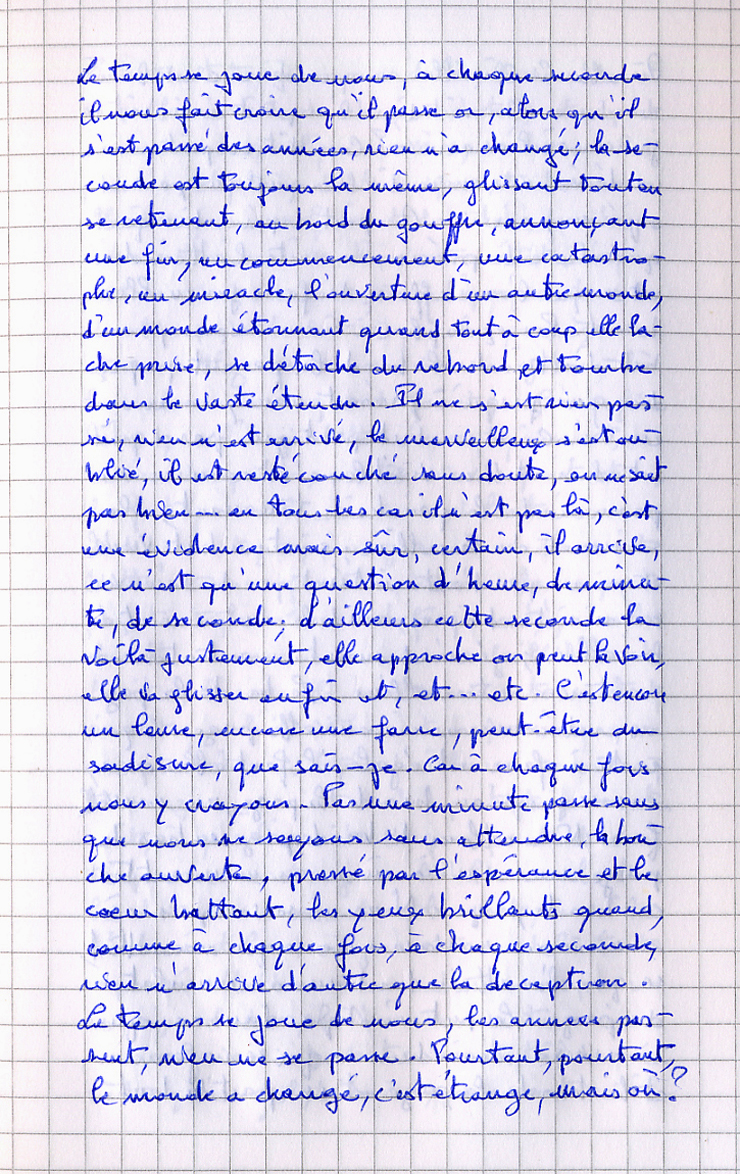 Le temps se joue de nous, à chaque seconde
il nous fait croire qu'il passe or, alors qu'il
s'est passé des années, rien n'a changé; la se-
conde est toujours la même, glissant tout en
se retenant, au bord du gouffre, annonçant
une fin, un commencement, une catastro-
phe, un miracle, l'ouverture d'un autre monde,
d'un monde étonnant quand tout à coup elle lâ-
che prise, se détache du rebord et tombe
dans le vaste étendu. Il ne s'est rien pas-
sé, rien n'est arrivé, le merveilleux s'est ou-
blié, il est resté couché sans doute, on ne sait
pas bien... en tous les cas il n'est pas là, c'est
une évidence mais sûr, certain, il arrive,
ce n'est qu'une question d'heure, de minu-
te, de seconde; d'ailleurs cette seconde la
voilà justement, elle approche on peut la voir,
elle va glisser enfin et, et... etc. C'est encore
un leurre, encore une farce, peut-être du
sadisme, que sais-je. Car à chaque fois
nous y croyons. Pas une minute passe sans
que nous ne soyons sans attendre, la bou-
che ouverte, pressé par l'espérance et le
coeur battant, les yeux brillants quand,
comme à chaque fois, à chaque seconde,
rien n'arrive d'autre que la deception.
Le temps se joue de nous, les années pas-
sent, rien ne se passe. Pourtant, pourtant,
le monde a changé, c'est étrange, mais où?